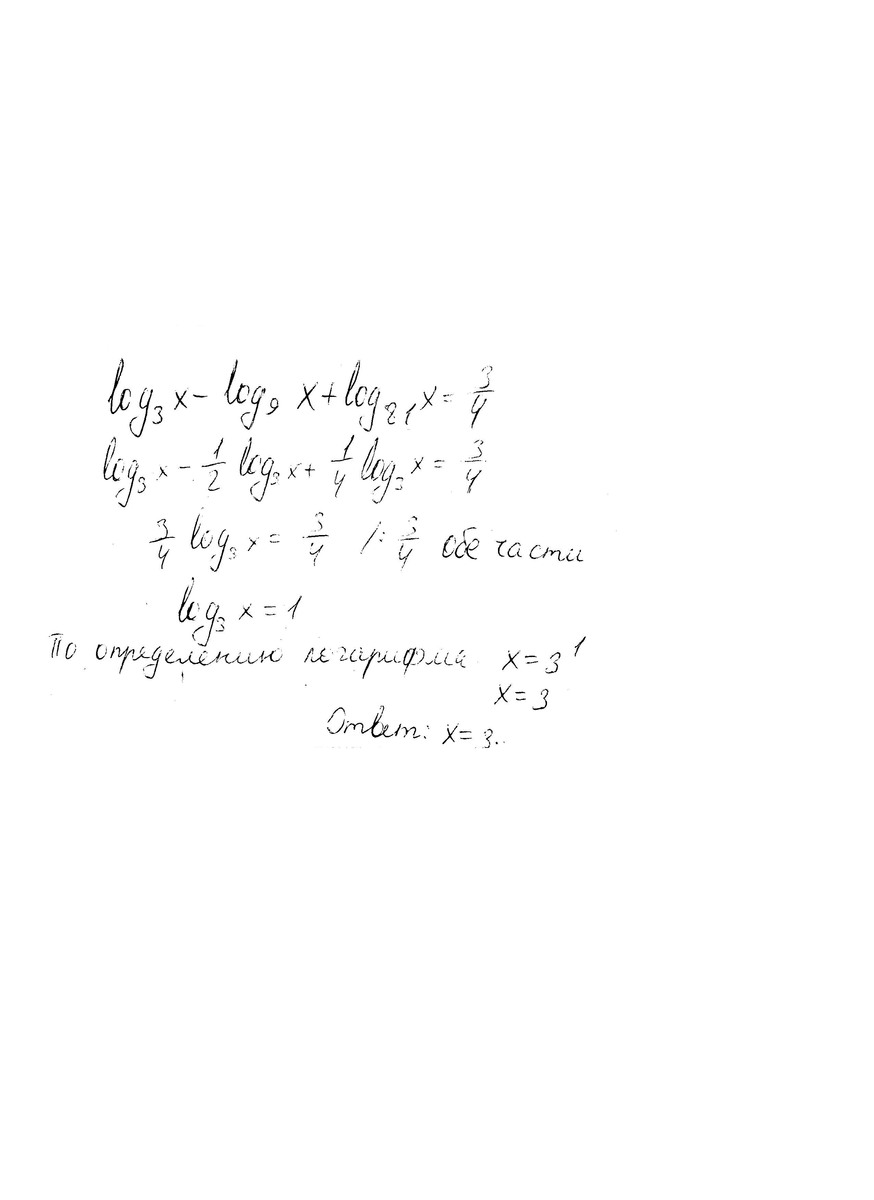 log₃ x - log₉ x + log₈₁ x = 3/4
log₃ x - 1/2 log₃ x + 1/4 log₃ x = 3/4
3/4 log₃ x = 3/4 /: 3/4 обе части
log₃ x = 1
По определению логарифма x = 3¹
x = 3
Ответ: x = 3.